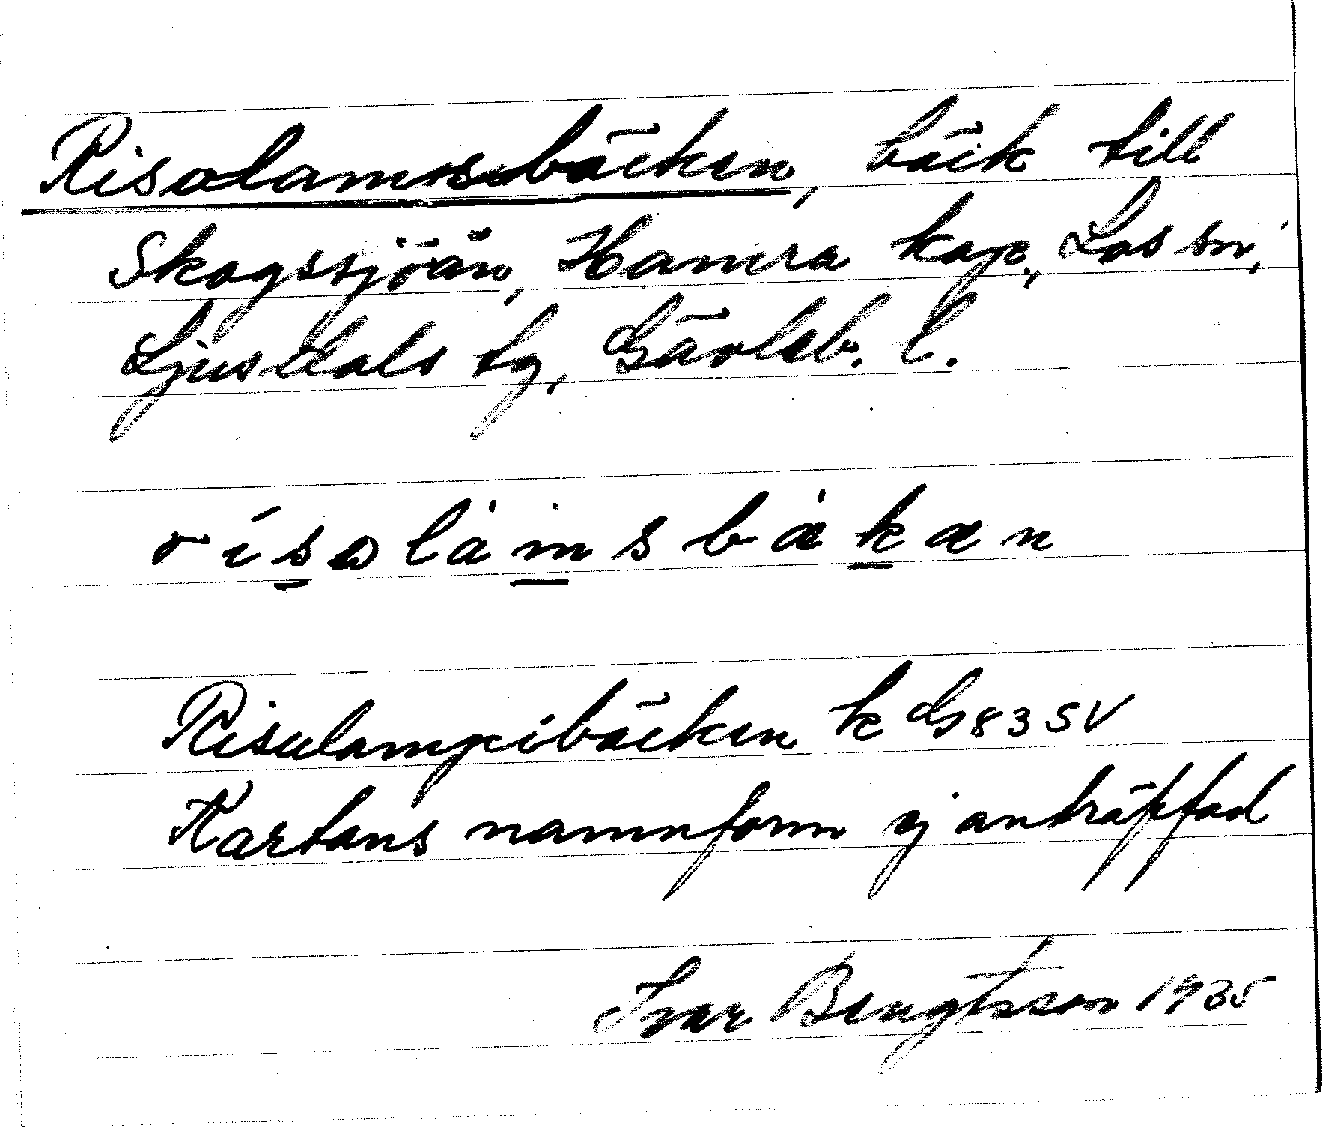 Risolamsbäcken, bäck till
Skogssjöån, Hamra kap., Los sn,
Ljusdals tg, Gävleb. l.
risolamsbäkæn
Risulampibäcken k G83SV
Kartans namnform ej anträffad
Ivar Bengtsson 1935